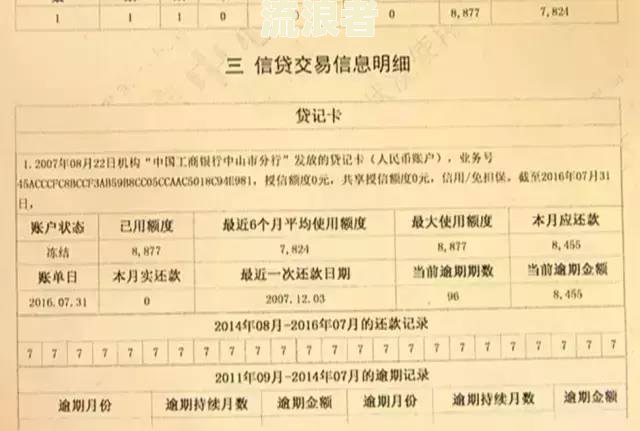 流浪者
1 1 1 0 0 0 8,877 7,824
三 信贷交易信息明细
贷记卡
1.2007年08月22日机构“中国工商银行中山市分行”发放的贷记卡（人民币账户），业务号
45ACCCFC8BCCF3AB59B8CC05CCAAC5018C94E981，授信额度0元，共享授信额度0元，信用/免担保。截至2016年07月31
日，
账户状态 已用额度 最近6个月平均使用额度 最大使用额度 本月应还款
冻结 8,877 7,824 8,877 8,455
账单日 本月实还款 最近一次还款日期 当前逾期期数 当前逾期金额
2016.07.31 0 2007.12.03 96 8,455
2014年08月-2016年07月的还款记录
7 7 7 7 7 7 7 7 7 7 7 7 7 7 7 7 7 7 7 7 7 7 7 7
2011年09月-2014年07月的逾期记录
逾期月份 逾期持续月数 逾期金额 逾期月份 逾期持续月数 逾期金额